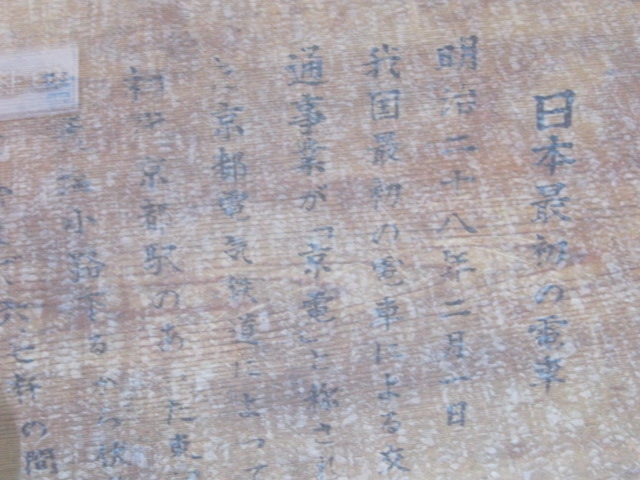 日本最初の電車
明治二十八年二月一日
我国最初の電車による交
通事業が「京電」と称され
京都電気鉄道によって
京都駅のあった東
小路下るから
六七粁の間